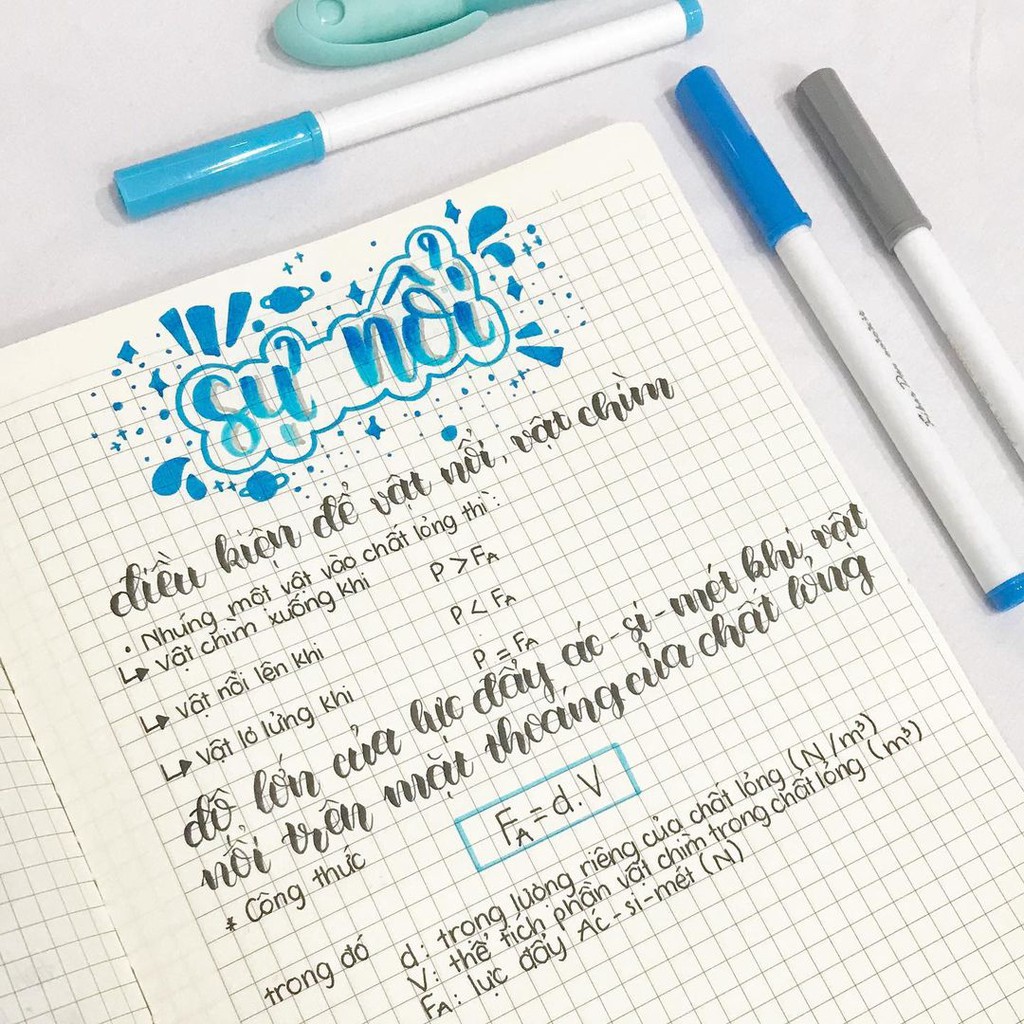 sự nổi
điều kiện để vật nổi, vật chìm
• Nhúng một vật vào chất lỏng thì:
↳ Vật chìm xuống khi P > FA
↳ Vật nổi lên khi P < FA
↳ Vật lơ lửng khi P = FA
độ lớn của lực đẩy ác-si-mét khi vật
nổi trên mặt thoáng của chất lỏng
* Công thức FA = d.V
trong đó d: trọng lượng riêng của chất lỏng (N/m³)
V: thể tích phần vật chìm trong chất lỏng (m³)
FA: lực đẩy Ác-si-mét (N)